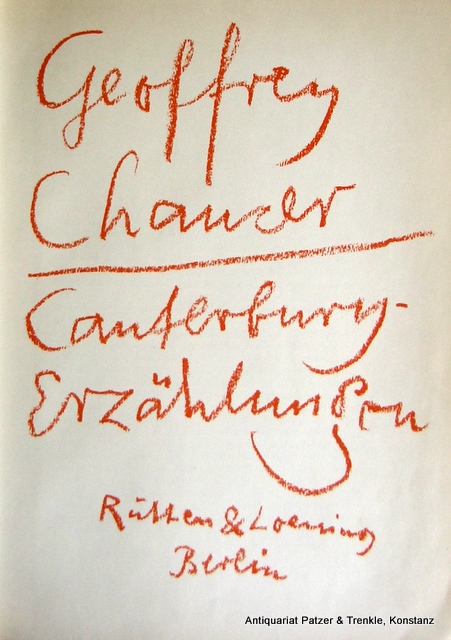 Geoffrey
Chaucer
Canterbury-
Erzählungen
Rütten & Loening
Berlin
Antiquariat Patzer & Trenkle, Konstanz